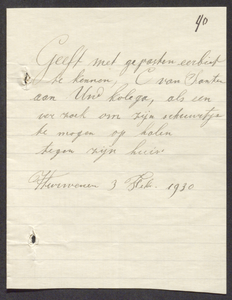 40
Geeft met gepasten eerbied
te kennen, C van Santen
aan Uw kolega, als een
ver zoek om zijn schuurtje
te mogen op halen
tegen zijn huis
Herwenen 3 Feb. 1930